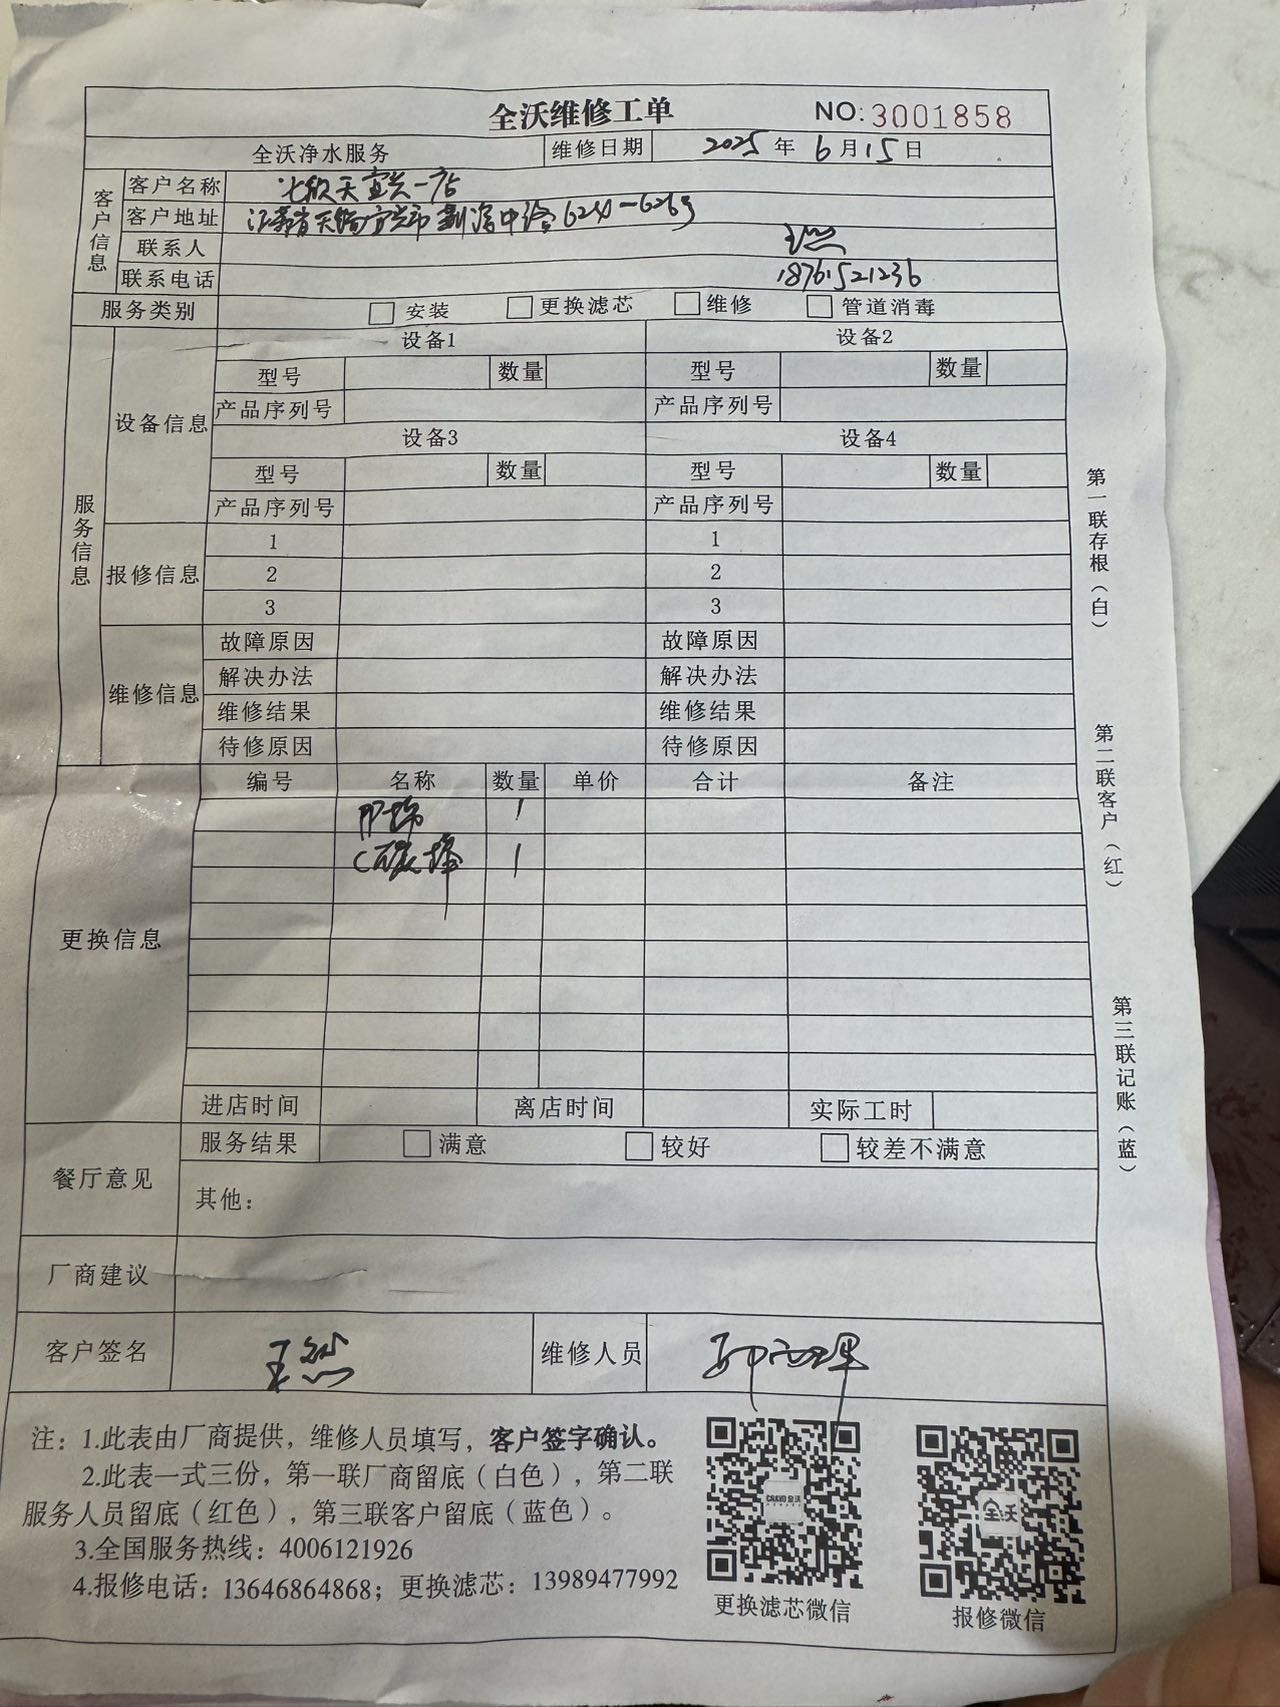 全沃维修工单 NO:3001858
全沃净水服务 维修日期 2025年6月15日
客户信息
客户名称 七欣天宜兴一店
客户地址 江苏省无锡宜兴市 6244-6263
联系人 王然
联系电话 18761521236
服务类别 安装 更换滤芯 维修 管道消毒
服务信息
设备信息
设备1 设备2
型号 数量 型号 数量
产品序列号 产品序列号
设备3 设备4
型号 数量 型号 数量
产品序列号 产品序列号
报修信息
1 1
2 2
3 3
维修信息
故障原因 故障原因
解决办法 解决办法
维修结果 维修结果
待修原因 待修原因
更换信息
编号 名称 数量 单价 合计 备注
PP棉 1
C碳棒 1
进店时间 离店时间 实际工时
餐厅意见
服务结果 满意 较好 较差不满意
其他：
厂商建议
客户签名 王然 维修人员
注：1.此表由厂商提供，维修人员填写，客户签字确认。
2.此表一式三份，第一联厂商留底（白色），第二联
服务人员留底（红色），第三联客户留底（蓝色）。
3.全国服务热线：4006121926
4.报修电话：13646864868；更换滤芯：13989477992
更换滤芯微信
全沃
报修微信
第一联存根（白）
第二联客户（红）
第三联记账（蓝）